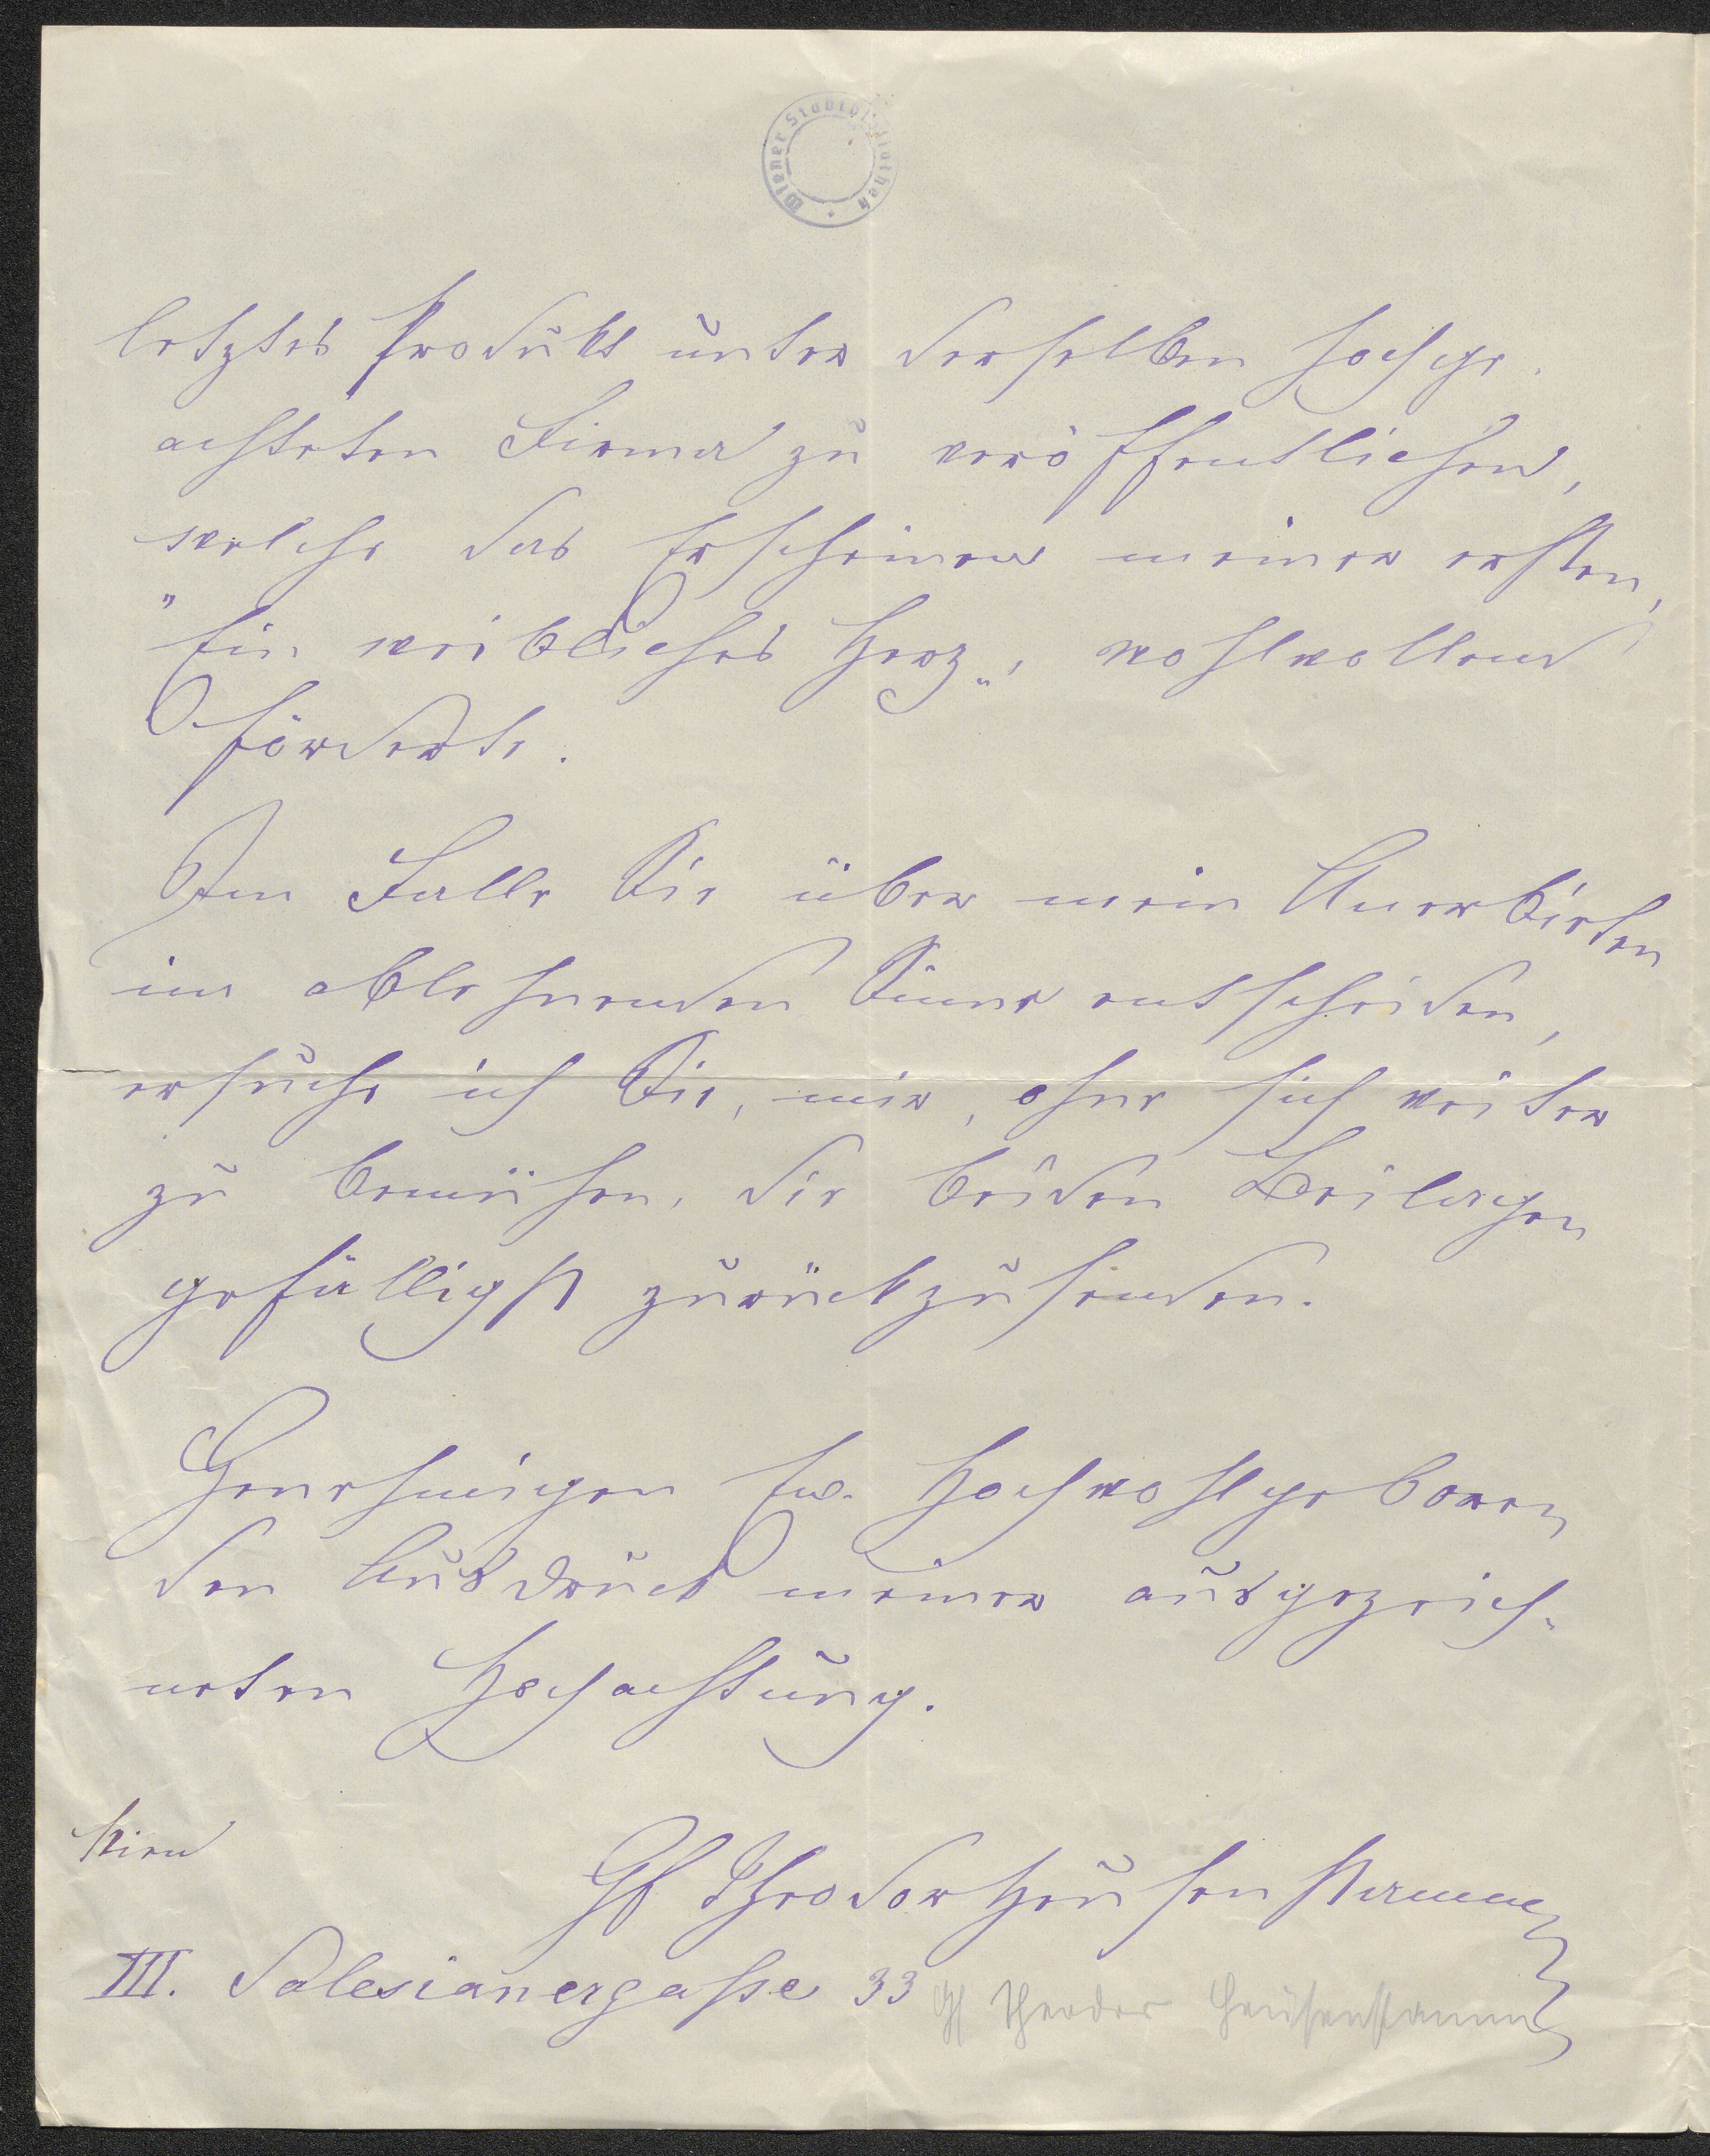 Wiener Stadtbibliothek
letztes Produkt unter derselben hochge-
achteten Firma zu veröffentlichen,
welche das Erscheinen meiner ersten,
"Ein weibliches Herz", wohlwollend
förderte.
Im Falle Sie über mein Anerbieten
im ablehnenden Sinne entscheiden,
ersuche ich Sie, mir, ohne sich weiter
zu bemühen, die beiden Beilagen
gefälligst zurückzusenden.
Genehmigen Ew. Hochwohlgeboren
den Ausdruck meiner ausgezeich-
neten Hochachtung.
Wien
Gf Theodor Heusenstamm
III. Salesianergasse 33
Gf Theodor Heusenstamm